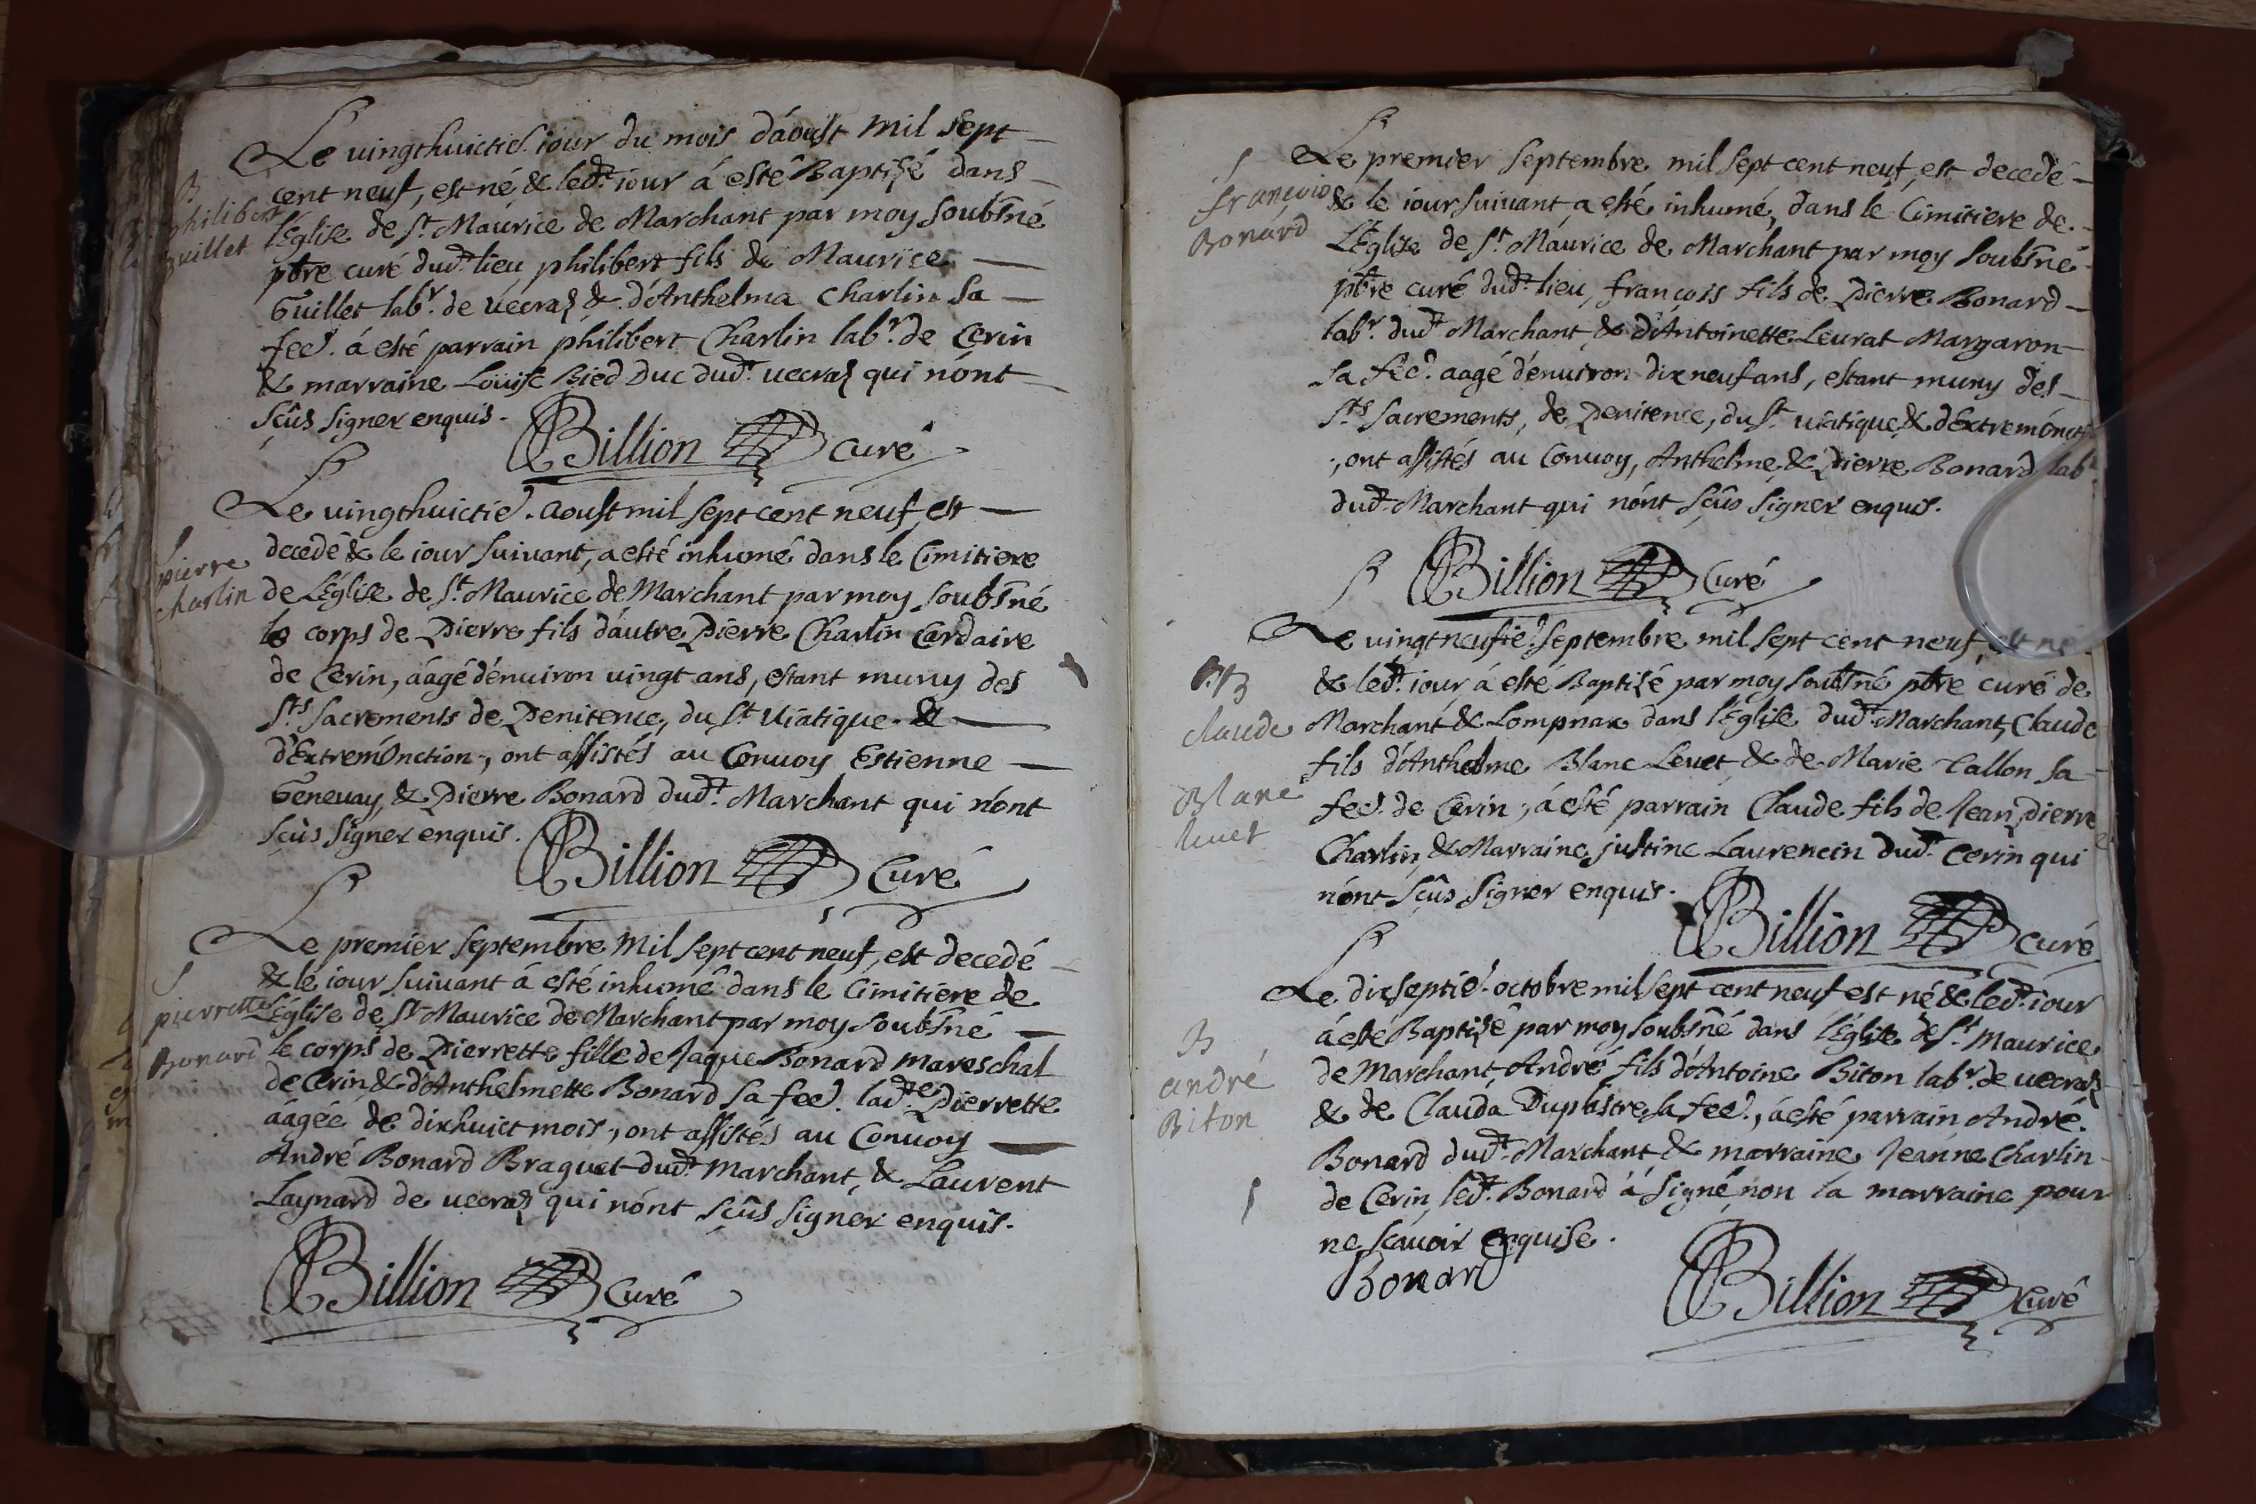 Le vingthuictie. iour du mois d'áoust mil sept
cent neuf, est né & led.t iour á esté Baptizé dans
B
philibert
guillet
l'Église de S.t Maurice de Marchant par moy soubsné
pbre curé dud.t lieu philibert fils de Maurice
Guillet lab.r de vecraz & d'Anthelma Charlin sa
fee. á esté parrain philibert Charlin lab.r de Cerin
& marraine Loüise Bied Duc dud.t vecraz qui nónt
sçûs signer enquis.
Billion curé
Le vingthuictie. aoust mil sept cent neuf, est
pierre
charlin
decedé & le iour suivant, a esté inhumé dans le Cimitiere
de L'Église de S.t Maurice de Marchant par moy soubsné
le corps de Pierre fils d'áutre Pierre Charlin Cardaire
de Cerin, áagé d'énuiron vingt ans, estant muny des
S.ts Sacrements de Penitence, du S.t Viatique &
d'ExtremOnction, ont assistés au Convoy Estienne
Genevay, & Pierre Bonard dud.t Marchant qui nónt
sçûs signer enquis.
Billion Curé
Le premier septembre mil sept cent neuf, est decedé
& le iour suivant á esté inhumé dans le Cimitiere de
pierrette
Bonard
L'Église de S.t Maurice de Marchant par moy soubsné
le corps de Pierrette fille de Jaque Bonard mareschal
de Cerin & d'Anthelmette Bonard sa fee. lad.te Pierrette
áagée de dixhuict mois, ont assistés au Convoy
André Bonard Braguet dud.t Marchant, & Laurent
Laynard de vecraz qui nónt sçûs signer enquis.
Billion Curé
Le premier septembre mil sept cent neuf, est decedé
françois
Bonard
& le iour suivant a esté inhumé, dans le Cimitiere de
L'Église de S.t Maurice de Marchant par moy soubsné
pbre curé dud.t lieu, françois fils de Pierre Bonard
lab.r dud.t Marchant, & d'Antoinette Leurat Margaron
sa fee. aagé d'énuiron dixneuf ans, estant muny des
S.ts Sacrements, de Penitence, du S.t viatique, & d'Extremóncti
, ont assistés au Convoy, Anthelme & Pierre Bonard lab.r
dud.t Marchant qui nónt sçûs signer enquis.
Billion Curé
Le vingtneufie. septembre mil sept cent neuf, est né
B
claude
Blanc
levet
& led.t iour á esté Baptizé par moy soubsné pbre curé de
Marchant & Lompnax dans l'Église dud.t Marchant, Claude
fils d'Anthelme Blanc Levet & de Marie Tallon sa
fee. de Cerin, á esté parrain Claude fils de Jean Pierre
Charlin & Marraine justine Laurencin dud.t Cerin qui
nónt sçûs signer enquis.
Billion curé
Le dixseptie. octobre mil sept cent neuf est né & led.t iour
B
andré
Biton
á esté Baptizé par moy soubsné dans l'Église de S.t Maurice
de Marchant, André fils d'Antoine Biton lab.r de vecraz
& de Clauda Duplastre sa fee., á esté parrain André
Bonard dud.t Marchant & marraine Jeanne Charlin
de Cerin, led.t Bonard á signé, non la marraine pour
ne scavoir enquise.
Bonard
Billion Curé